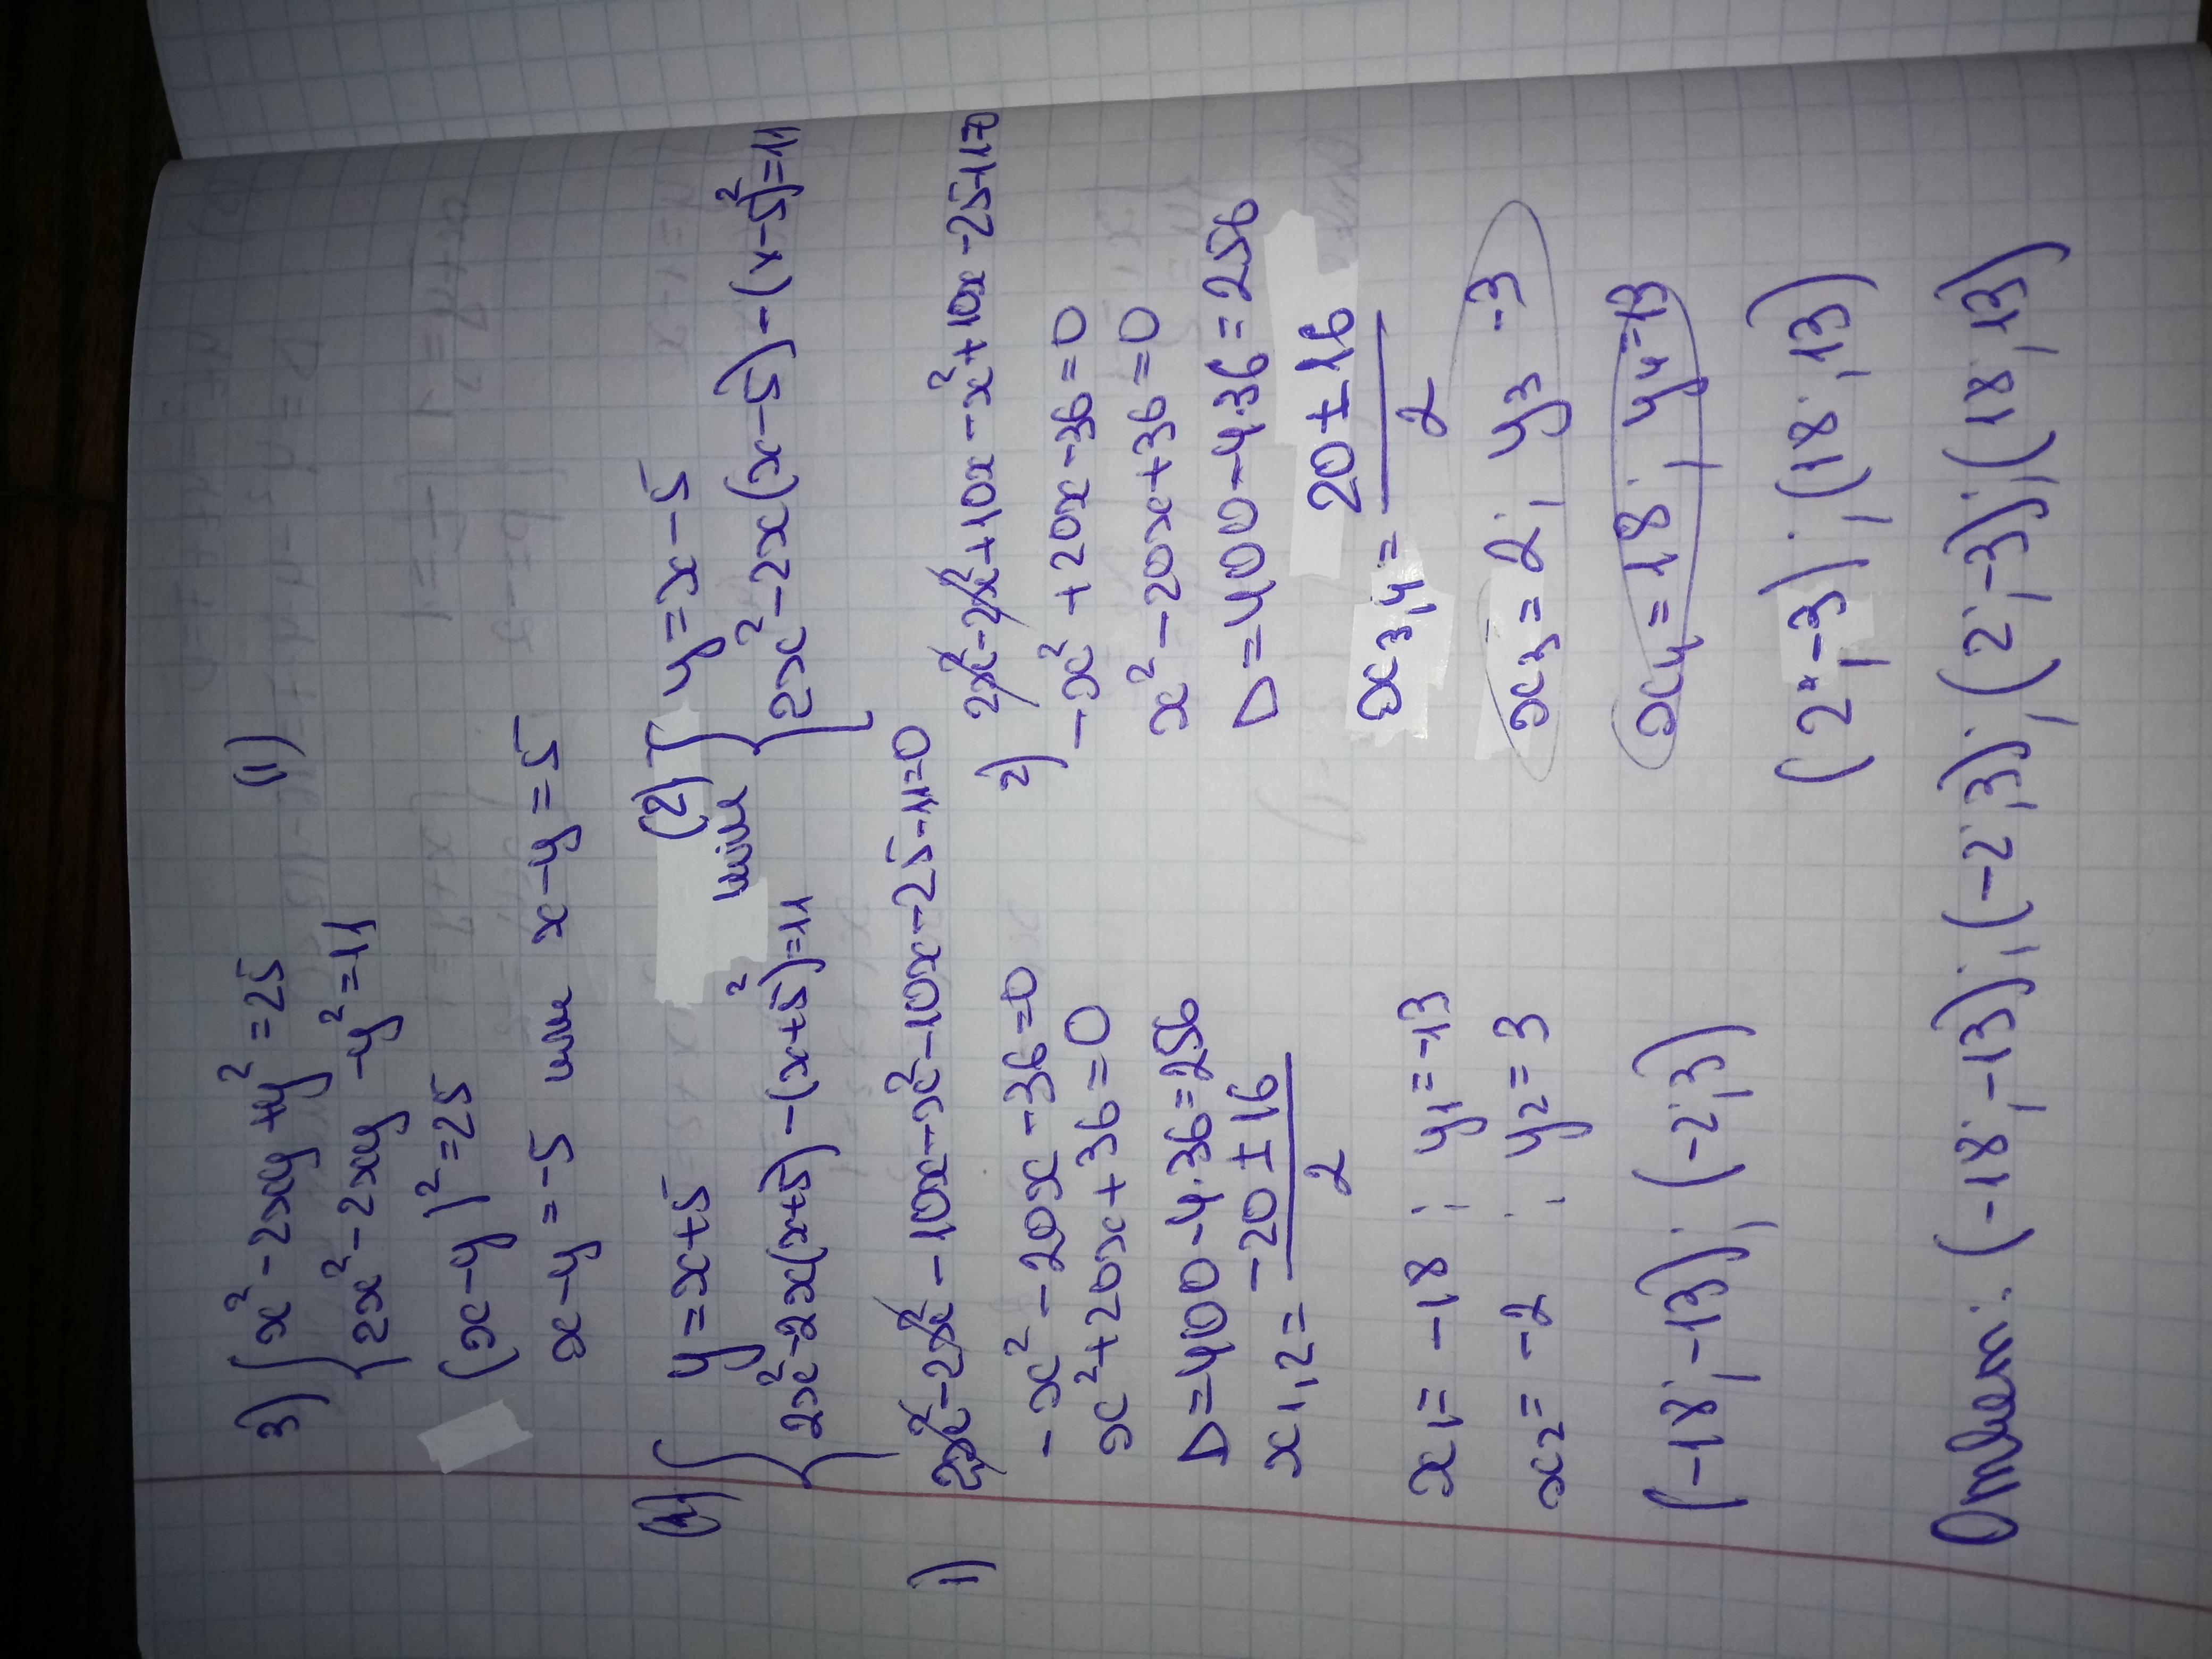 3) { x² - 2xy + y² = 25 (1)
2x² - 2xy - y² = 11
(x - y)² = 25
x - y = -5 или x - y = 5
(1) { y = x + 5
2x² - 2x(x+5) - (x+5)² = 11
или
(2) { y = x - 5
2x² - 2x(x-5) - (x-5)² = 11
1) 2x² - 2x² - 10x - x² - 10x - 25 - 11 = 0
- x² - 20x - 36 = 0
x² + 20x + 36 = 0
D = 400 - 4·36 = 256
x1,2 = (-20 ± 16)/2
x1 = -18 ; y1 = -13
x2 = -2 ; y2 = 3
(-18; -13); (-2; 3)
2) 2x² - 2x² + 10x - x² + 10x - 25 - 11 = 0
- x² + 20x - 36 = 0
x² - 20x + 36 = 0
D = 400 - 4·36 = 256
x3,4 = (20 ± 16)/2
x3 = 2; y3 -3
x4 = 18; y4 = 13
(2; -3); (18; 13)
Ответ: (-18; -13); (-2; 3); (2; -3); (18; 13)